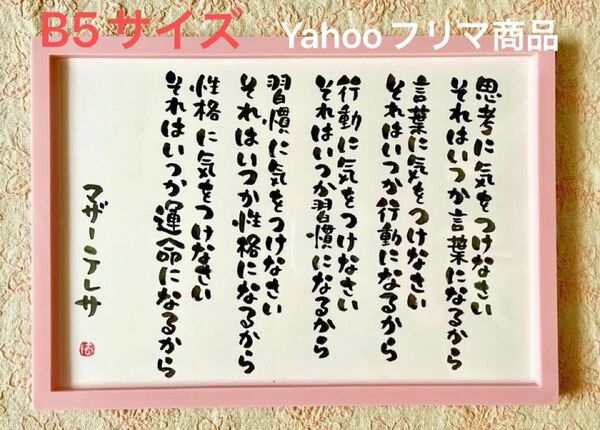 B5サイズ
Yahooフリマ商品
思考に気をつけなさい
それはいつか言葉になるから
言葉に気をつけなさい
それはいつか行動になるから
行動に気をつけなさい
それはいつか習慣になるから
習慣に気をつけなさい
それはいつか性格になるから
性格に気をつけなさい
それはいつか運命になるから
マザーテレサ